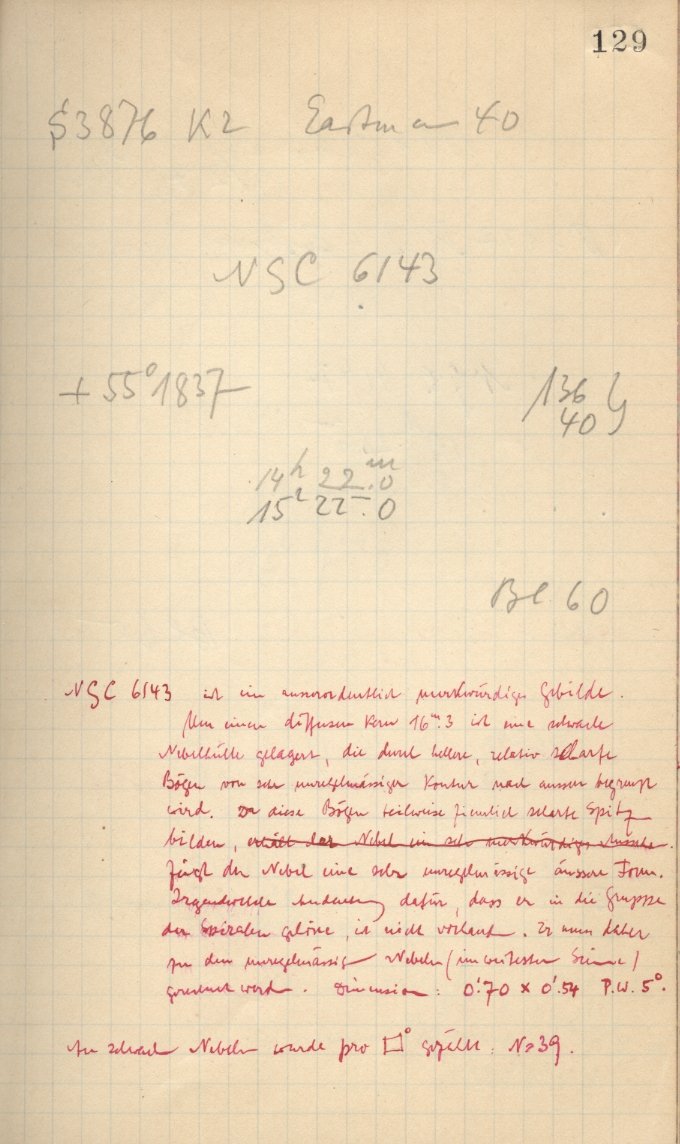 129
S3876 K2 Eastman 40
NGC 6143
+55°1837
136
40
14h 22m.0
15h 22m.0
Be 60
NGC 6143 ist ein ausserordentlich merkwürdiges Gebilde.
Um einen diffusen Kern 16m.3 ist eine schwache
Nebelhülle gelagert, die durch hellere, relativ scharfe
Bögen von sehr unregelmässiger Kontur nach aussen begrenzt
wird. Da diese Bögen teilweise ziemlich scharfe Spitzen
bilden, erhält der Nebel ein sehr merkwürdiges Aussehen.
zeigt der Nebel eine sehr unregelmässige äussere Form.
Irgendwelche Andeutung dafür, dass er in die Gruppe
der Spiralen gehöre, ist nicht vorhanden. Er muss daher
zu den unregelmässigen Nebeln (im weitesten Sinne)
gerechnet werden. Dimension: 0'.70 x 0'.54 P.W. 5°.
An schwachen Nebeln wurde pro □° gezählt: N=39.